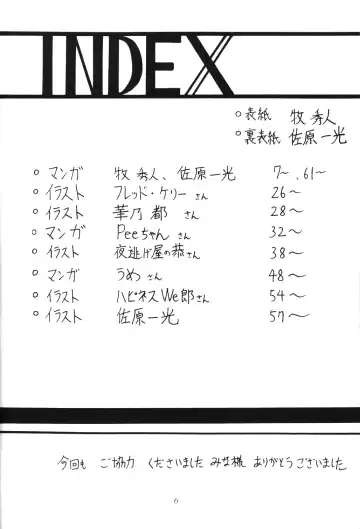 INDEX
○表紙 牧秀人
○裏表紙 佐原一光
○マンガ 牧秀人、佐原一光 7～.61～
○イラスト フレッド・ケリーさん 26～
○イラスト 華乃都さん 28～
○マンガ Peeちゃんさん 32～
○イラスト 夜逃げ屋の恭さん 38～
○マンガ うめさん 48～
○イラスト ハピネスWe郎さん 54～
○イラスト 佐原一光 57～
今回も ご協力 くださいました みな様 ありがとう ございました
6